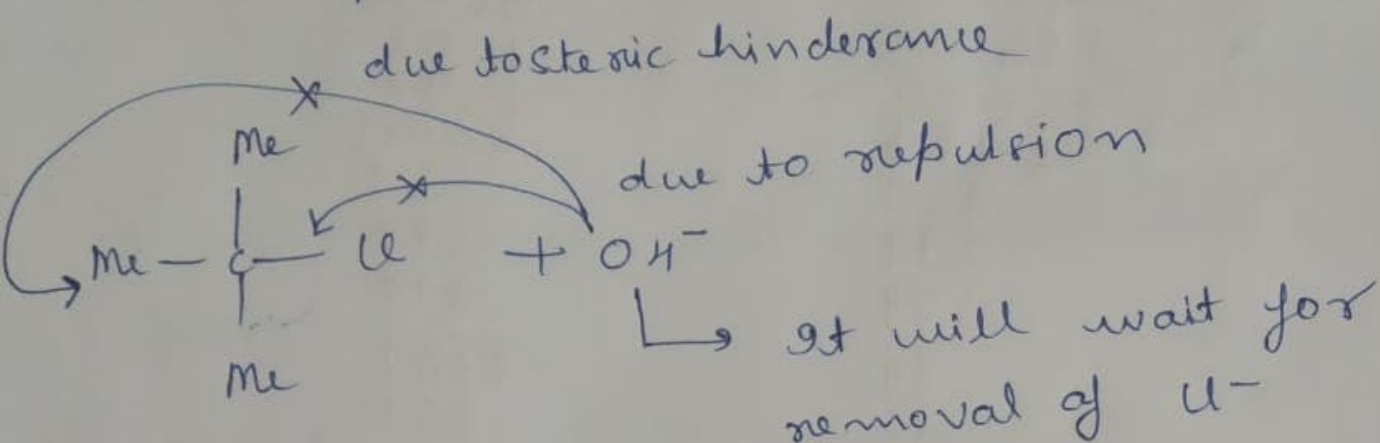 due to steric hinderance
Me
due to repulsion
Me — C — Cl + OH⁻
It will wait for
Me
removal of Cl⁻